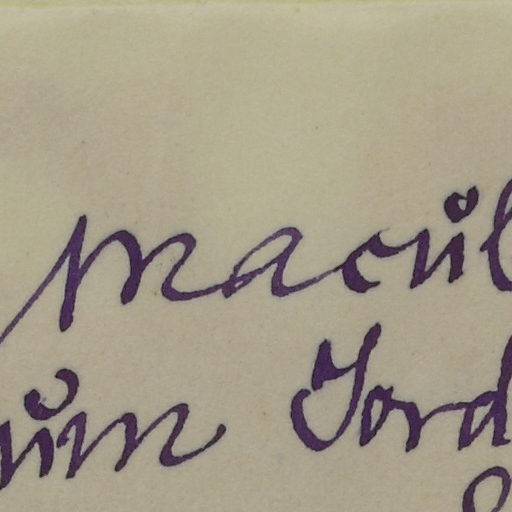 Macůl
ům Jord